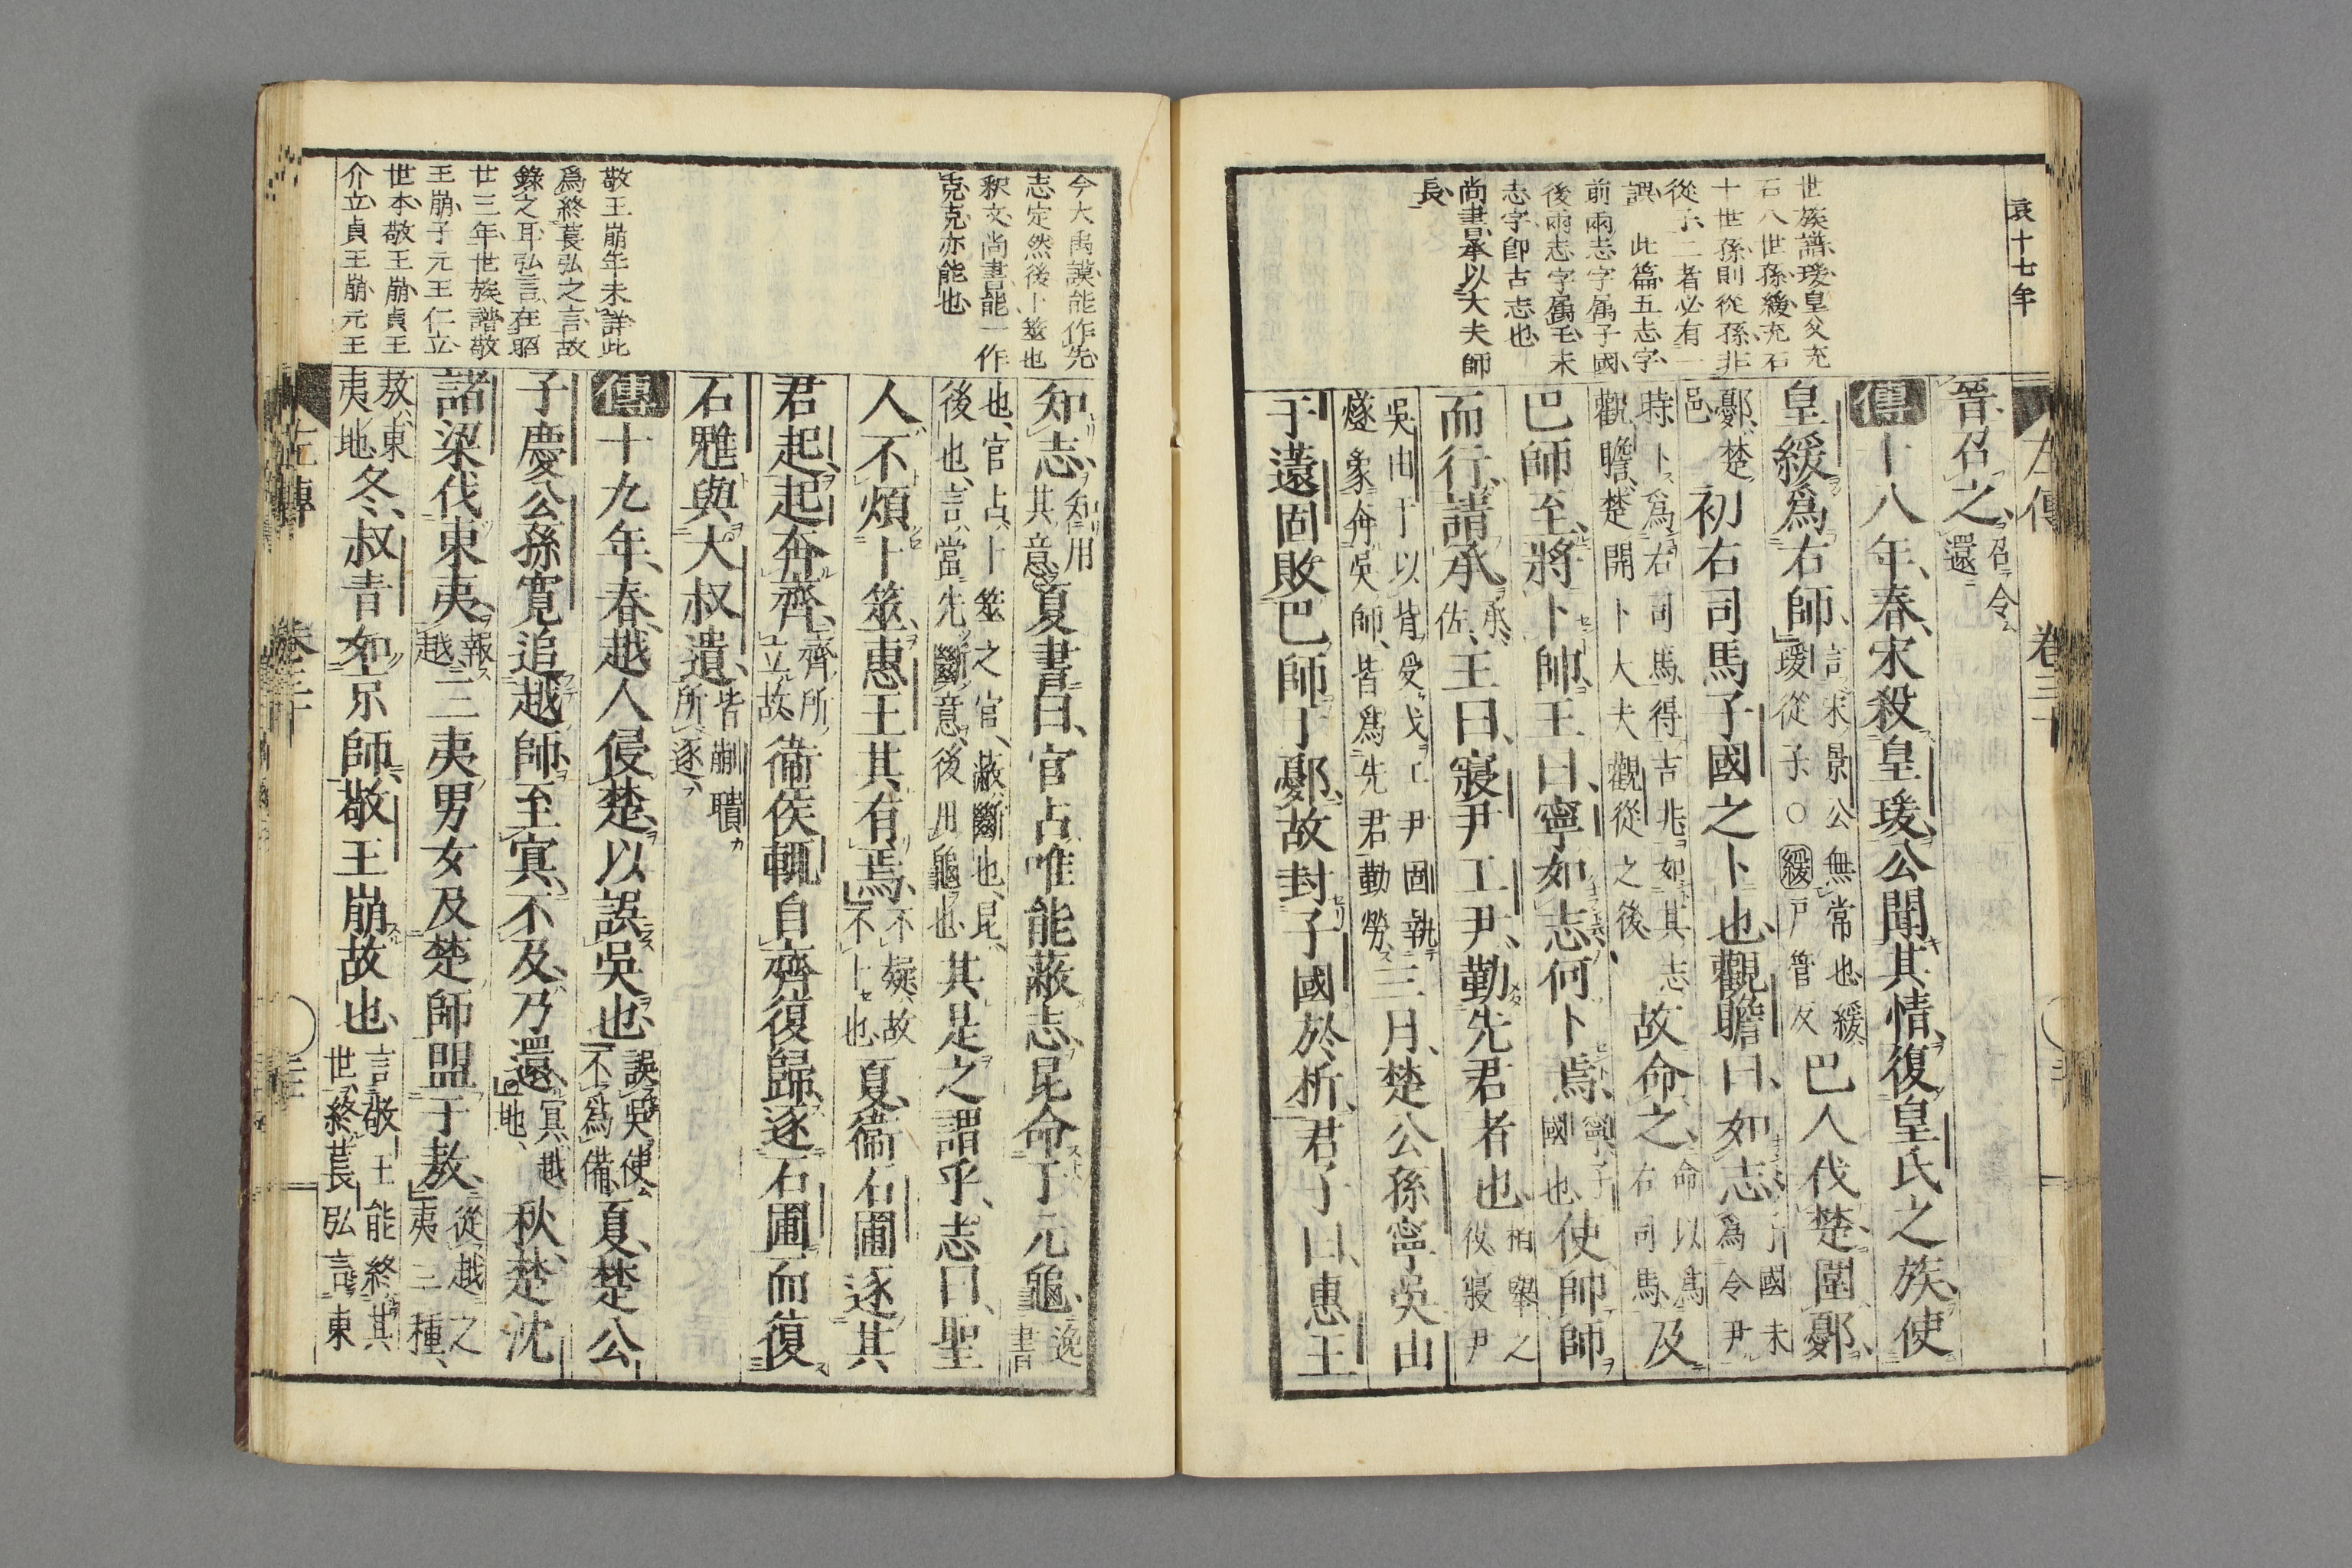 哀十七年
左傳　卷三十
世族譜瑗皇父充
石八世孫緩充石
十世孫則從孫非
從子二者必有一
誤　此篇五志字
前兩志字屬子國
後兩志字屬王末
志字卽古志也
尚書承以大夫師
長
晉召之召令還
傳十八年春宋殺皇瑗公聞其情復皇氏之族使
皇緩爲右師言宋景公無常也緩瑗從子○緩戸管反巴人伐楚圍鄾
鄾楚邑初右司馬子國之卜也觀瞻曰如志子國未爲令尹
時卜爲右司馬得吉兆如其志觀瞻楚開卜大夫觀從之後故命之命以爲右司馬及
巴師至將卜帥王曰寧如志何卜焉寧子國也使帥師
而行請承承佐王曰寢尹工尹勤先君者也柏舉之役寢尹
吳由于以背受戈工尹固執燧象奔吳師皆爲先君勤勞三月楚公孫寧吳由
于薳固敗巴師于鄾故封子國於析君子曰惠王
今大禹謨能作先
志定然後卜筮也
釈文尚書能一作
克克亦能也
敬王崩年未詳此
爲終萇弘之言故
錄之耳弘言在昭
廿三年世族譜敬
王崩子元王仁立
世本敬王崩貞王
介立貞王崩元王
知志知用其意夏書曰官占唯能蔽志昆命于元龜逸書
也官占卜筮之官蔽斷也昆後也言當先斷意後用龜也其是之謂乎志曰聖
人不煩卜筮惠王其有焉不疑故不卜也夏衞石圃逐其
君起起奔齊齊所立故衞侯輒自齊復歸逐石圃而復
石魋與大叔遺皆蒯聵所逐
傳十九年春越人侵楚以誤吳也誤吳使不爲備夏楚公
子慶公孫寬追越師至冥不及乃還冥越地秋楚沈
諸梁伐東夷報越三夷男女及楚師盟于敖從越之夷三種
敖東夷地冬叔青如京師敬王崩故也言敬王能終其世終萇弘言東
左傳　卷三十